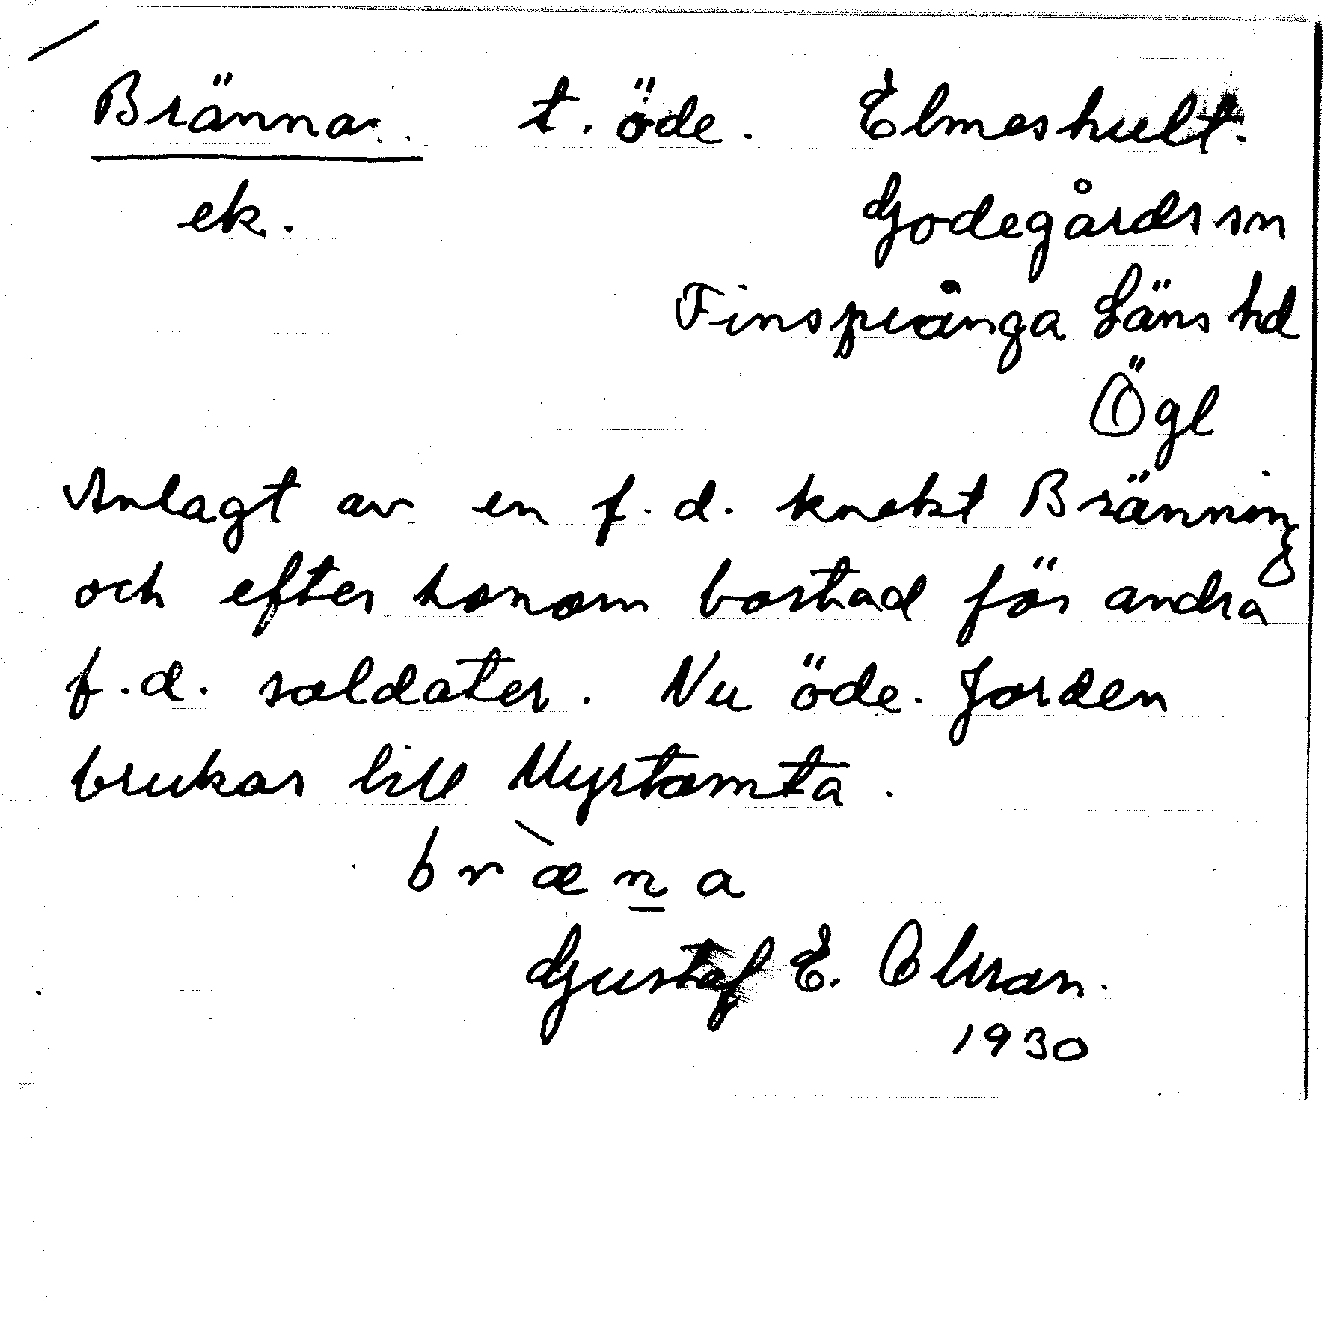 Bränna. t. öde. Elmeshult.
ek. Godegårds sn
Finspånga Läns hd
Ögl
Anlagt av en f.d. knekt Bränning
och efter honom bostad för andra
f.d. soldater. Nu öde. Jorden
brukas till Myrtomta.
bræ̀n̲a
Gustaf E. Olsson.
1930